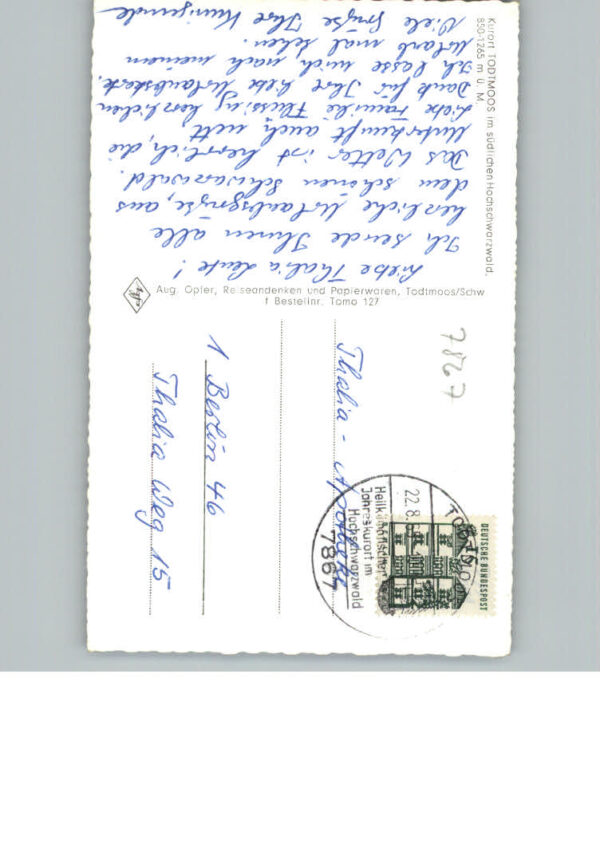 Kurort TODTMOOS im südlichen Hochschwarzwald.
850-1265 m ü. M.
Liebe Thalia Leute!
Ich sende Ihnen alle
herzliche Urlaubsgrüße, aus
dem schönen Schwarzwald.
Das Wetter ist herrlich, die
Unterkunft auch nett.
Liebe Familie Flessing herzlichen
Dank für Ihre liebe Urlaubskarte.
Ich lasse mich nach meinem
Urlaub mal sehen.
Viele Grüße Ihre Kunigunde
Agfa
Aug. Opfer, Reiseandenken und Papierwaren, Todtmoos/Schw
f Bestellnr. Tomo 127
7867
Thalia - Apotheke
1 Berlin 46
Thalia Weg 15
DEUTSCHE BUNDESPOST
TODTMOOS
22.8.
Heilklimatischer
Jahreskurort im
Hochschwarzwald
7867